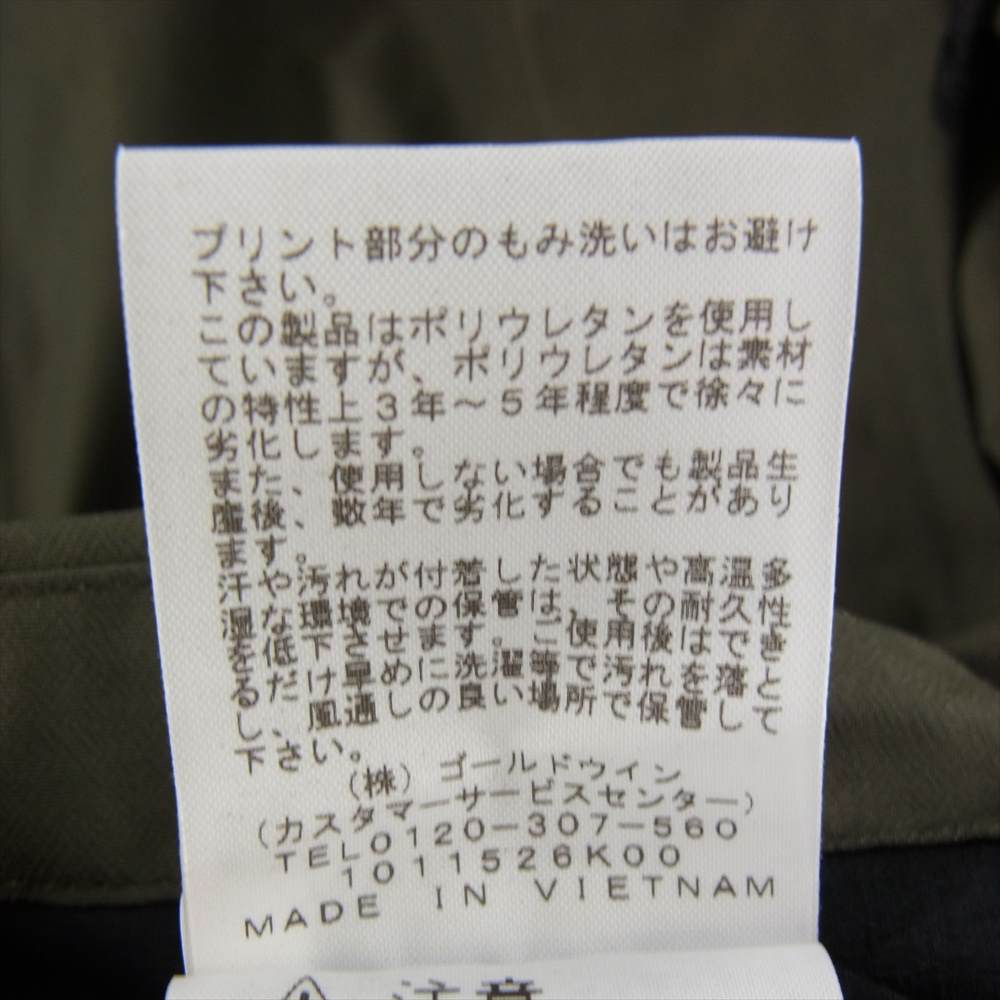 プリント部分のもみ洗いはお避け
下さい。
この製品はポリウレタンを使用し
ていますが、ポリウレタンは素材
の特性上3年～5年程度で徐々に
劣化します。
また、使用しない場合でも製品生
産後、数年で劣化することがあり
ます。
汗や汚れが付着した状態や高温多
湿な環境での保管は、その耐久性
を低下させます。ご使用後はでき
るだけ早めに洗濯等で汚れを落と
し、風通しの良い場所で保管して
下さい。
(株)ゴールドウイン
(カスタマーサービスセンター)
TEL0120-307-560
1011526K00
MADE IN VIETNAM
注意